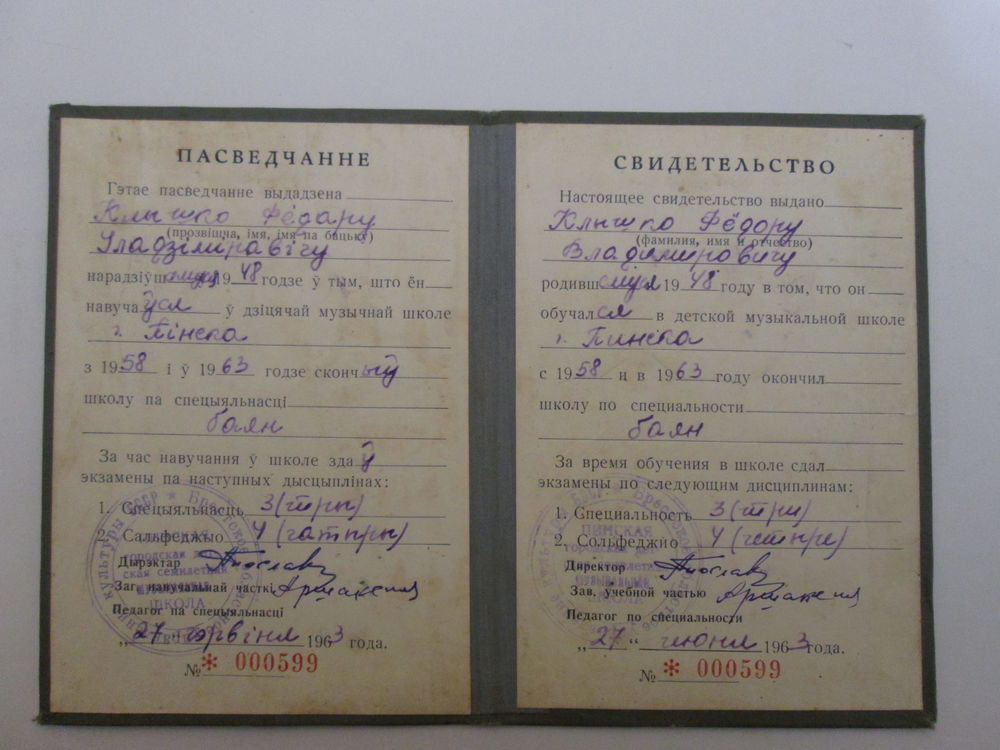 ПАСВЕДЧАННЕ
Гэтае пасведчанне выдадзена
Клышко Фёдару
(прозвішча, імя, імя па бацьку)
Уладзіміравічу
нарадзіўшамуся 1948 годзе ў тым, што ён
навучаўся ў дзіцячай музычнай школе
г. Пінска
з 1958 і ў 1963 годзе скончыў
школу па спецыяльнасці
баян
За час навучання ў школе здаў
экзамены па наступных дысцыплінах:
1. Спецыяльнасць 3 (тры)
2. Сальфеджыо 4 (чатыры)
Дырэктар
Заг. навучальнай часткі
Педагог па спецыяльнасці
„27“ чэрвіня 1963 года.
№ * 000599
СВИДЕТЕЛЬСТВО
Настоящее свидетельство выдано
Клышко Фёдору
(фамилия, имя и отчество)
Владимировичу
родившемуся 1948 году в том, что он
обучался в детской музыкальной школе
г. Пинска
с 1958 и в 1963 году окончил
школу по специальности
баян
За время обучения в школе сдал
экзамены по следующим дисциплинам:
1. Специальность 3 (три)
2. Сольфеджио 4 (четыре)
Директор
Зав. учебной частью
Педагог по специальности
„27“ июня 1963 года.
№ * 000599